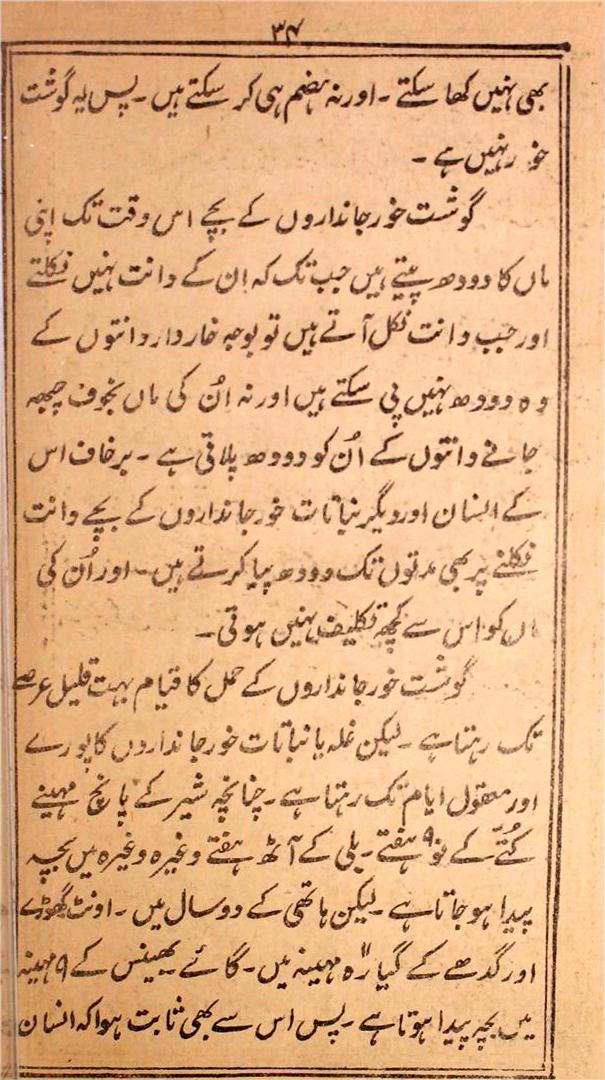 ۳۴
بھی نہیں کھا سکتے ۔ اور نہ ہضم ہی کر سکتے ہیں ۔ پس یہ گوشت
خور نہیں ہے ۔
گوشت خور جانداروں کے بچے اس وقت تک اپنی
ماں کا دودھ پیتے ہیں جب تک کہ اِن کے دانت نہیں نکلتے
اور جب دانت نکل آتے ہیں تو بوجہ خاردار دانتوں کے
وہ دودھ نہیں پی سکتے ہیں اور نہ اُن کی ماں بخوف چبھہ
جانے دانتوں کے اُن کو دودھ پلاتی ہے ۔ برخاف اس
کے انسان اور دیگر نباتات خور جانداروں کے بچے دانت
نکلنے پر بھی مدتوں تک دودھ پیا کرتے ہیں ۔ اور اُن کی
ماں کو اس سے کچھ تکلیف نہیں ہوتی ۔
گوشت خور جانداروں کے حمل کا قیام بہت قلیل عرصے
تک رہتا ہے ۔ لیکن غلہ یا نباتات خور جانداروں کا پورے
اور معقول ایام تک رہتا ہے ۔ چنانچہ شیر کے پانچ مہینے
کُتّے کے نو ۹ ہفتے ۔ بلی کے آٹھ ہفتے وغیرہ وغیرہ میں بچہ
پیدا ہو جاتا ہے ۔ لیکن ہاتھی کے دو سال میں ۔ اونٹ گھوڑے
اور گدھے کے گیارہ ۱۱ مہینہ میں ۔ گائے بھینس کے ۹ مہینہ
میں بچہ پیدا ہوتا ہے ۔ پس اس سے بھی ثابت ہوا کہ انسان